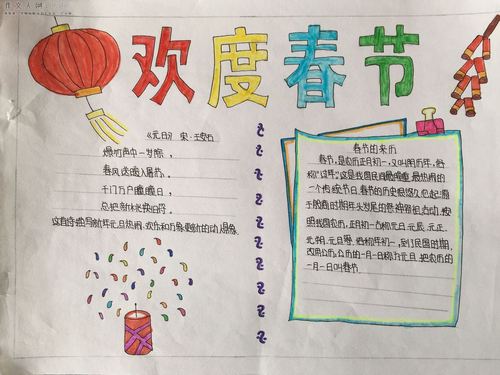 作文人网
欢度春节
《元日》 宋·王安石
爆竹声中一岁除，
春风送暖入屠苏。
千门万户曈曈日，
总把新桃换旧符。
这首诗描写新年元旦热闹、欢乐和万象更新的动人景象
春节的来历
春节，是农历正月初一，又叫阴历年，俗
称“过年”这是我国民间最隆重、最热闹的
一个传统节日。春节的历史很悠久，它起源
于殷商时期年头岁尾的祭神祭祖活动。按
照我国农历，正月初一古称元日、元辰、元正、
元朔、元旦等，俗称年初一，到了民国时期，
改用公历，公历的一月一日称为元旦，把农历的
一月一日叫春节